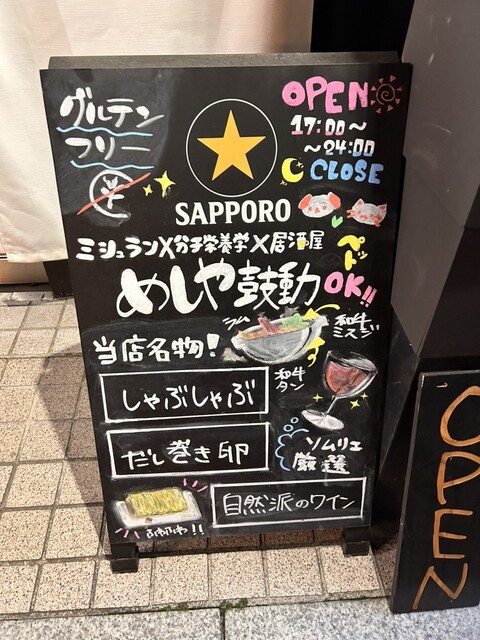 グルテン
フリー
OPEN
17:00〜
〜24:00
CLOSE
SAPPORO
ミシュラン×分子栄養学×居酒屋
ペット
OK!!
めしや鼓動
当店名物!
ラム
和牛
ミスジ
和牛
タン
しゃぶしゃぶ
だし巻き卵
ソムリエ
厳選
自然派のワイン
ふわふわ!!
OPEN